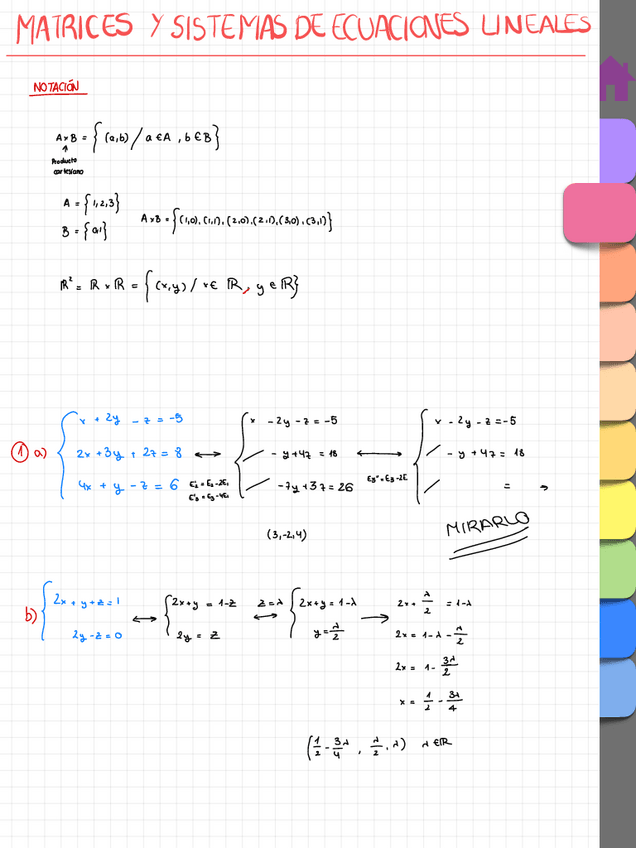 MATRICES Y SISTEMAS DE ECUACIONES LINEALES
NOTACIÓN
A×B = { (a,b) / a ∈ A , b ∈ B }
↑
Producto
cartesiano
A = {1,2,3}
B = {0,1}
A×B = {(1,0), (1,1), (2,0), (2,1), (3,0), (3,1)}
ℝ² = ℝ × ℝ = { (x,y) / x ∈ ℝ, y ∈ ℝ}
① a)
x + 2y - z = -5
2x + 3y + 2z = 8
4x + y - z = 6
↔
E₂' = E₂ - 2E₁
E₃' = E₃ - 4E₁
x - 2y - z = -5
- y + 4z = 18
- 7y + 3z = 26
↔
E₃'' = E₃ - 2E
x - 2y - z = -5
- y + 4z = 18
= →
(3,-2,4)
MIRARLO
b)
2x + y + z = 1
2y - z = 0
↔
2x + y = 1 - z
2y = z
z = λ
↔
2x + y = 1 - λ
y = λ/2
→
2x + λ/2 = 1 - λ
2x = 1 - λ - λ/2
2x = 1 - 3λ/2
x = 1/2 - 3λ/4
(1/2 - 3λ/4 , λ/2 , λ) λ ∈ ℝ